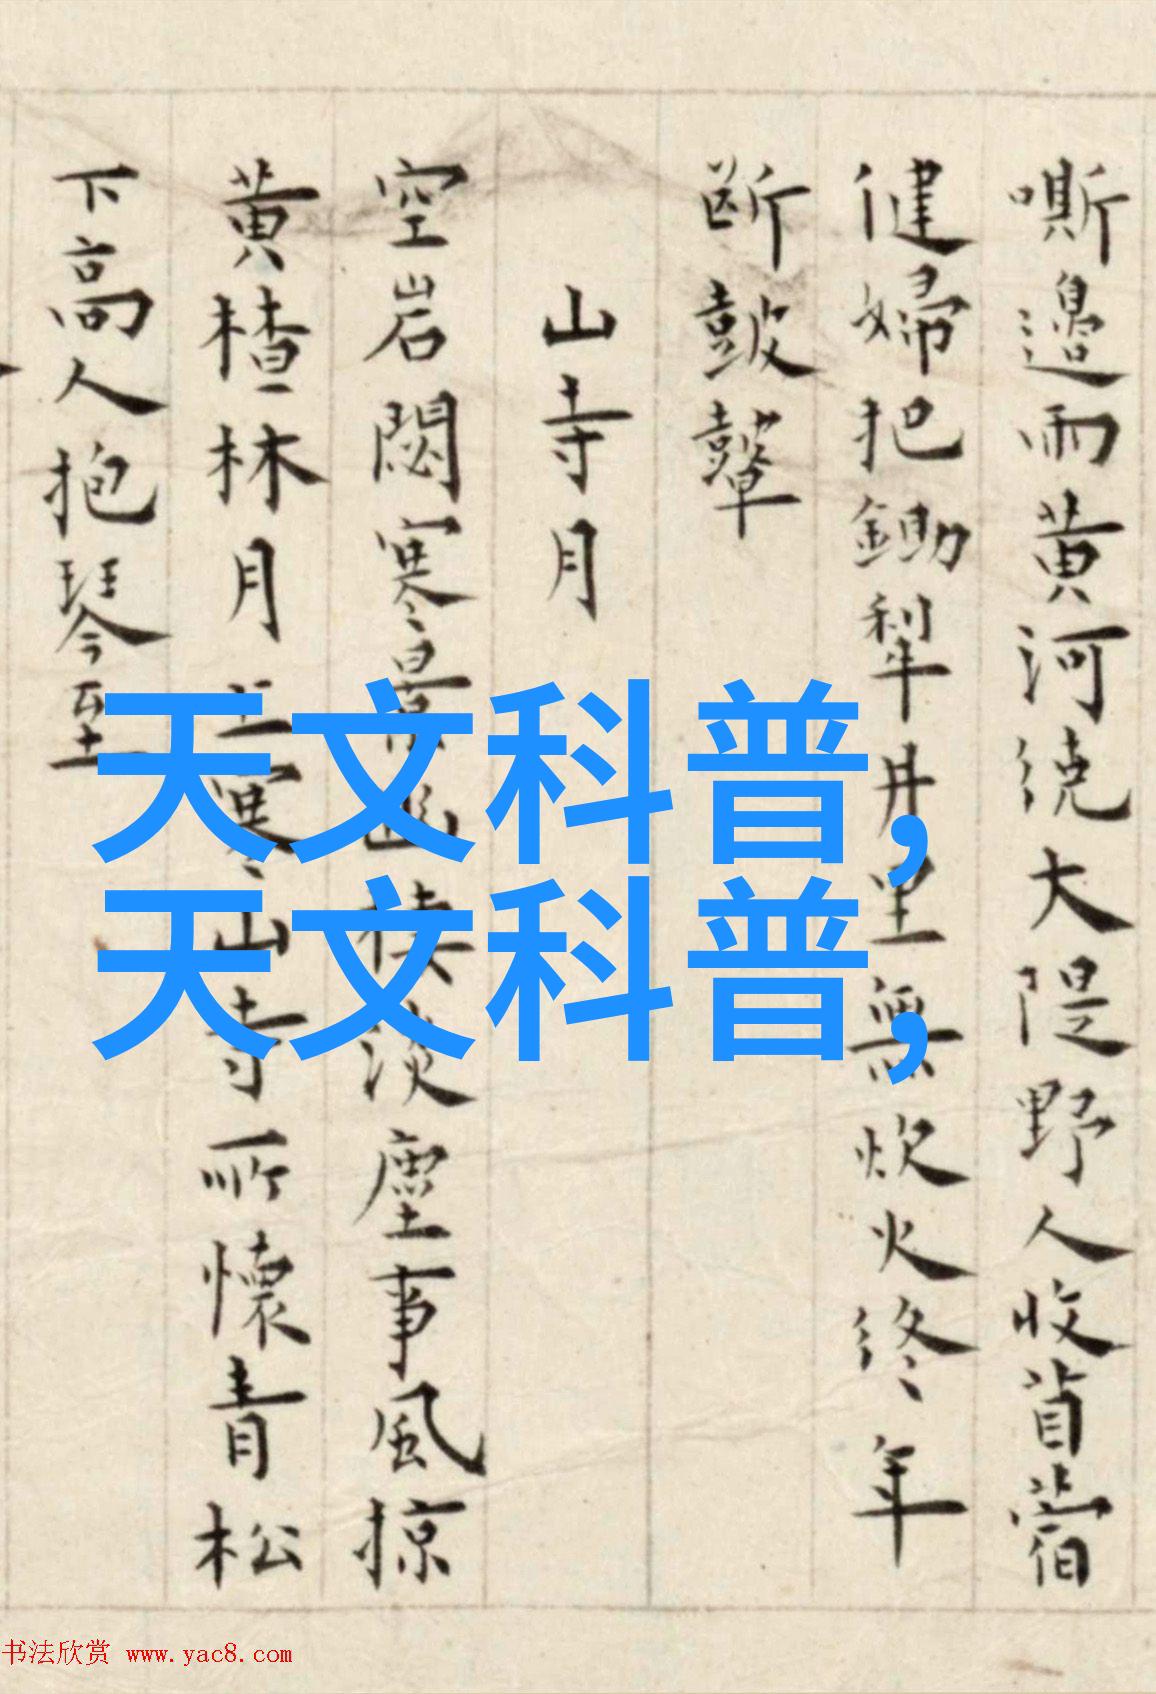 嘶邊雨黄河繞大隄野人收苜蓿
健婦把鋤犁井里無炊火終年
斷鼓鼙
山寺月
空岩閟寒景 棲淡塵事風掠
黄楂林月上寒山寺所懷青松
下高人抱琴至
天文科普,
天文科普,
书法欣赏 www.yac8.com